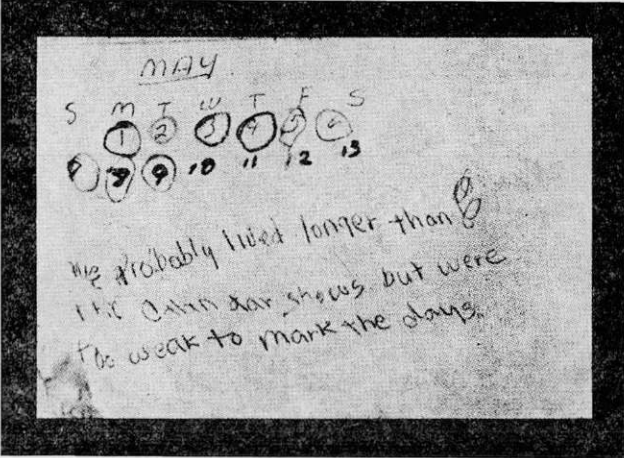 MAY
S M T W T F S
1 2 3 4 5 6
7 8 9 10 11 12 13
We probably lived longer than
the calendar shows but were
too weak to mark the days.